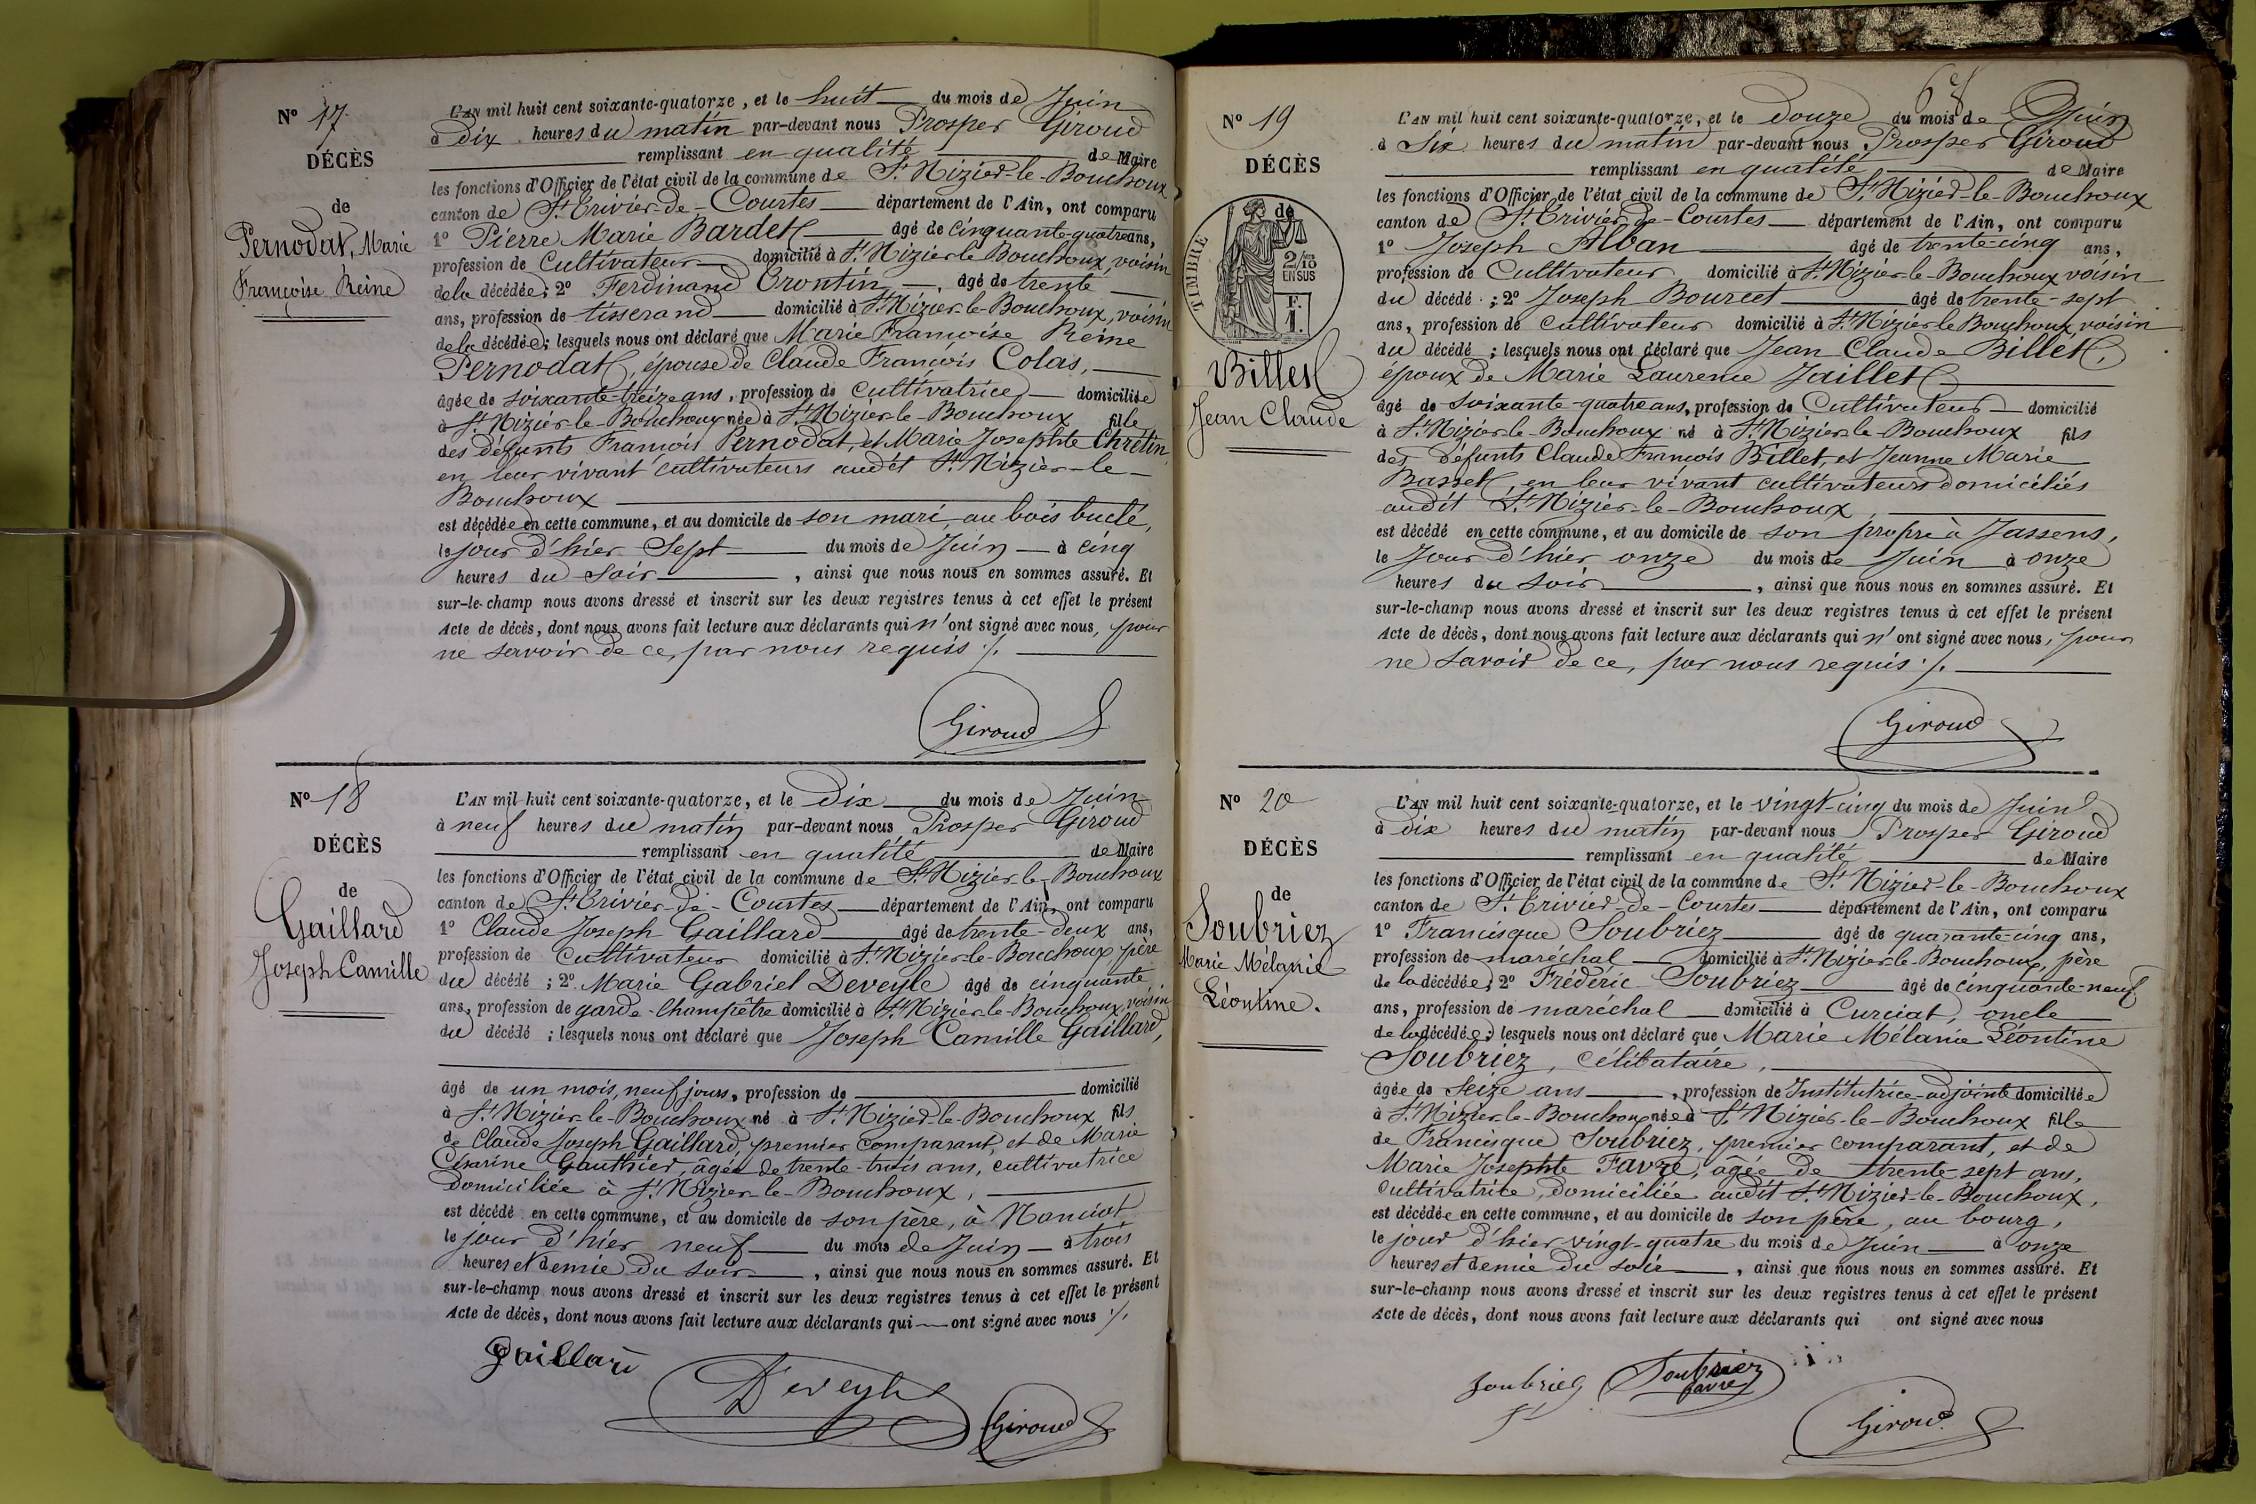 Nº 17
DÉCÈS
de
Pernodat, Marie
Françoise Reine
L'AN mil huit cent soixante-quatorze, et le huit du mois de Juin
à dix heures du matin par-devant nous Prosper Giroud
remplissant en qualité de Maire
les fonctions d'Officier de l'état civil de la commune de St Nizier-le-Bouchoux
canton de St Trivier-de-Courtes département de l'Ain, ont comparu
1º Pierre Marie Bardet âgé de cinquante-quatre ans,
profession de Cultivateur domicilié à St Nizier le Bouchoux, voisin
de la décédée; 2º Ferdinand Orontin, âgé de trente
ans, profession de tisserand domicilié à St Nizier-le-Bouchoux, voisin
de la décédée; lesquels nous ont déclaré que Marie Françoise Reine
Pernodat, épouse de Claude François Colas,
âgée de soixante-treize ans, profession de cultivatrice domiciliée
à St Nizier-le-Bouchoux née à St Nizier-le-Bouchoux fille
des défunts François Pernodat, et Marie Josephte Chrétin,
en leur vivant cultivateurs audit St Nizier-le-
Bouchoux
est décédée en cette commune, et au domicile de son mari, au bois buclé,
le jour d'hier Sept du mois de Juin à cinq
heures du soir, ainsi que nous nous en sommes assuré. Et
sur-le-champ nous avons dressé et inscrit sur les deux registres tenus à cet effet le présent
Acte de décès, dont nous avons fait lecture aux déclarants qui n'ont signé avec nous, pour
ne savoir de ce, par nous requis ./.
Giroud
Nº 18
DÉCÈS
de
Gaillard
Joseph Camille
L'AN mil huit cent soixante-quatorze, et le Dix du mois de Juin
à neuf heures du matin par-devant nous Prosper Giroud
remplissant en qualité de Maire
les fonctions d'Officier de l'état civil de la commune de St Nizier-le-Bouchoux
canton de St Trivier-de-Courtes département de l'Ain, ont comparu
1º Claude Joseph Gaillard âgé de trente-deux ans,
profession de Cultivateur domicilié à St Nizier-le-Bouchoux père
du décédé; 2º Marie Gabriel Deveyle âgé de cinquante
ans, profession de garde-Champêtre domicilié à St Nizier-le-Bouchoux, voisin
du décédé; lesquels nous ont déclaré que Joseph Camille Gaillard,
âgé de un mois, neuf jours, profession de domicilié
à St Nizier-le-Bouchoux né à St Nizier-le-Bouchoux fils
de Claude Joseph Gaillard, premier comparant, et de Marie
Césarine Gauthier, âgée de trente-trois ans, cultivatrice
domiciliée à St Nizier-le-Bouchoux,
est décédé en cette commune, et au domicile de son père, à Manciat
le jour d'hier neuf du mois de Juin à trois
heures et demie du soir, ainsi que nous nous en sommes assuré. Et
sur-le-champ nous avons dressé et inscrit sur les deux registres tenus à cet effet le présent
Acte de décès, dont nous avons fait lecture aux déclarants qui ont signé avec nous ./.
Gaillard
Deveyle
Giroud
67
Nº 19
DÉCÈS
de
TIMBRE
2/10
EN SUS
F.
1.
Billet
Jean Claude
L'AN mil huit cent soixante-quatorze, et le douze du mois de Juin
à Six heures du matin par-devant nous Prosper Giroud
remplissant en qualité de Maire
les fonctions d'Officier de l'état civil de la commune de St Nizier-le-Bouchoux
canton de St Trivier-de-Courtes département de l'Ain, ont comparu
1º Joseph Alban âgé de trente-cinq ans,
profession de Cultivateur domicilié à St Nizier-le-Bouchoux voisin
du décédé; 2º Joseph Bourcet âgé de trente-sept
ans, profession de cultivateur domicilié à St Nizier le Bouchoux, voisin
du décédé; lesquels nous ont déclaré que Jean Claude Billet,
époux de Marie Laurence Jaillet
âgé de soixante-quatre ans, profession de Cultivateur domicilié
à St Nizier-le-Bouchoux né à St Nizier-le-Bouchoux fils
des défunts Claude François Billet, et Jeanne Marie
Basset, en leur vivant cultivateurs domiciliés
audit St Nizier-le-Bouchoux,
est décédé en cette commune, et au domicile de son propre à Jassens,
le Jour d'hier onze du mois de Juin à onze
heures du soir, ainsi que nous nous en sommes assuré. Et
sur-le-champ nous avons dressé et inscrit sur les deux registres tenus à cet effet le présent
Acte de décès, dont nous avons fait lecture aux déclarants qui n'ont signé avec nous, pour
ne savoir de ce, par nous requis ./.
Giroud
Nº 20
DÉCÈS
de
Soubriez
Marie Mélanie
Léontine.
L'AN mil huit cent soixante-quatorze, et le vingt-cinq du mois de Juin
à dix heures du matin par-devant nous Prosper Giroud
remplissant en qualité de Maire
les fonctions d'Officier de l'état civil de la commune de St Nizier-le-Bouchoux
canton de St Trivier-de-Courtes département de l'Ain, ont comparu
1º Francisque Soubriez âgé de quarante-cinq ans,
profession de maréchal domicilié à St Nizier-le-Bouchoux, père
de la décédée; 2º Frédéric Soubriez âgé de cinquante-neuf
ans, profession de maréchal domicilié à Curciat, oncle
de la décédée; lesquels nous ont déclaré que Marie Mélanie Léontine
Soubriez, célibataire,
âgée de seize ans, profession de Institutrice-adjointe domiciliée
à St Nizier-le-Bouchoux née à St Nizier-le-Bouchoux fille
de Francisque Soubriez, premier comparant, et de
Marie Josephte Favre, âgée de trente-sept ans,
cultivatrice, domiciliée audit St Nizier-le-Bouchoux,
est décédée en cette commune, et au domicile de son père, au bourg,
le jour d'hier vingt-quatre du mois de Juin à onze
heures et demie du soir, ainsi que nous nous en sommes assuré. Et
sur-le-champ nous avons dressé et inscrit sur les deux registres tenus à cet effet le présent
Acte de décès, dont nous avons fait lecture aux déclarants qui ont signé avec nous
Soubriez
Soubriez
favre
Giroud